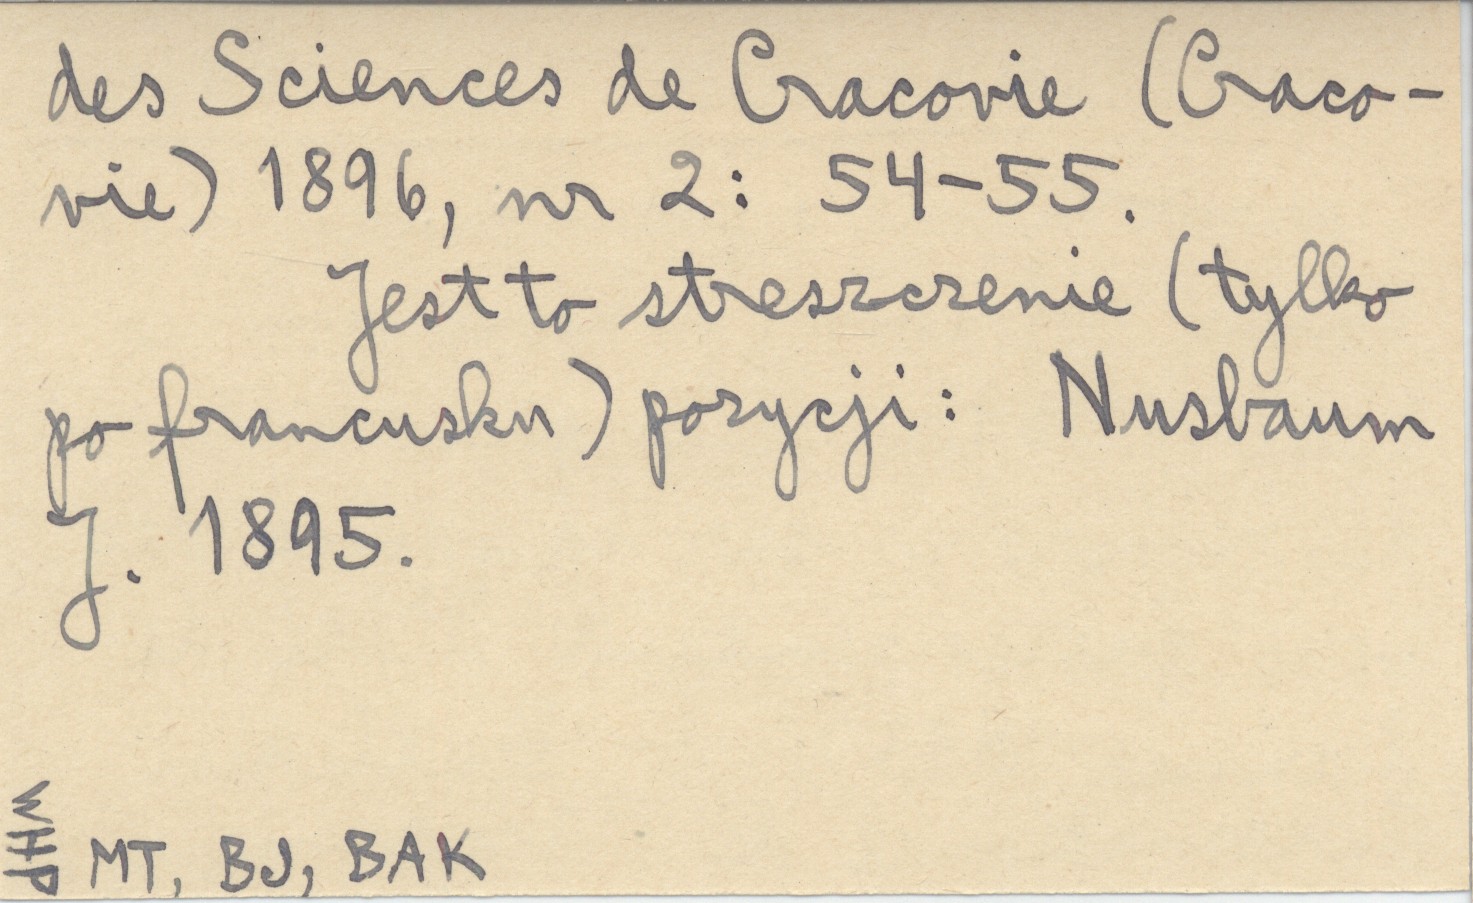 des Sciences de Cracovie (Craco-
vie) 1896, nr 2: 54-55.
Jest to streszczenie (tylko
po francusku) pozycji: Nusbaum
J. 1895.
WHP
MT, BJ, BAK